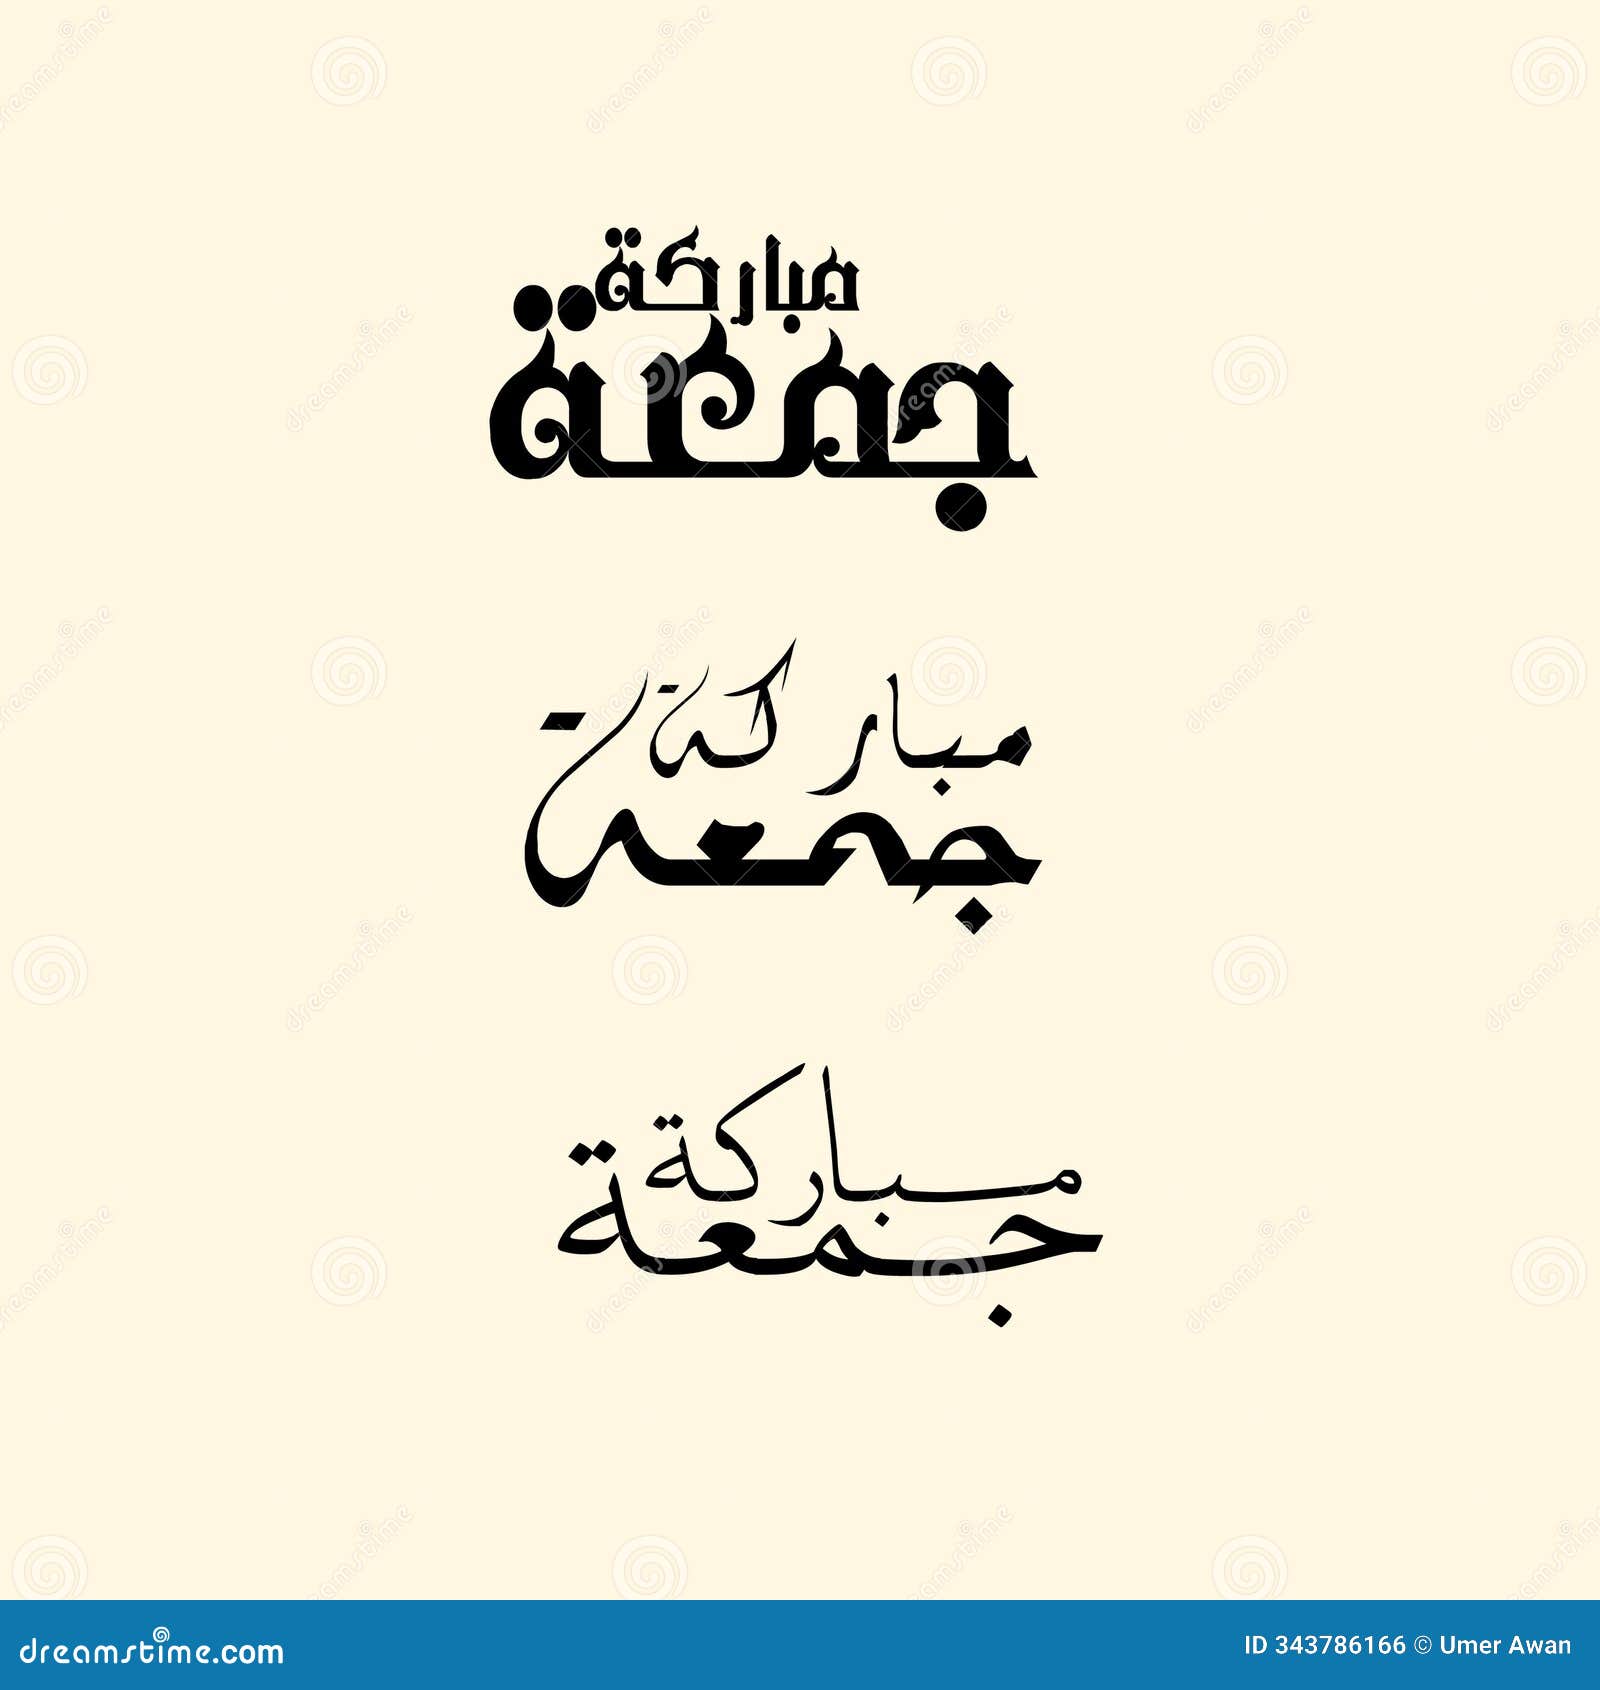 مباركة
جمعة
مباركة
جمعة
مباركة
جمعة
dreamstime.com
ID 343786166 © Umer Awan